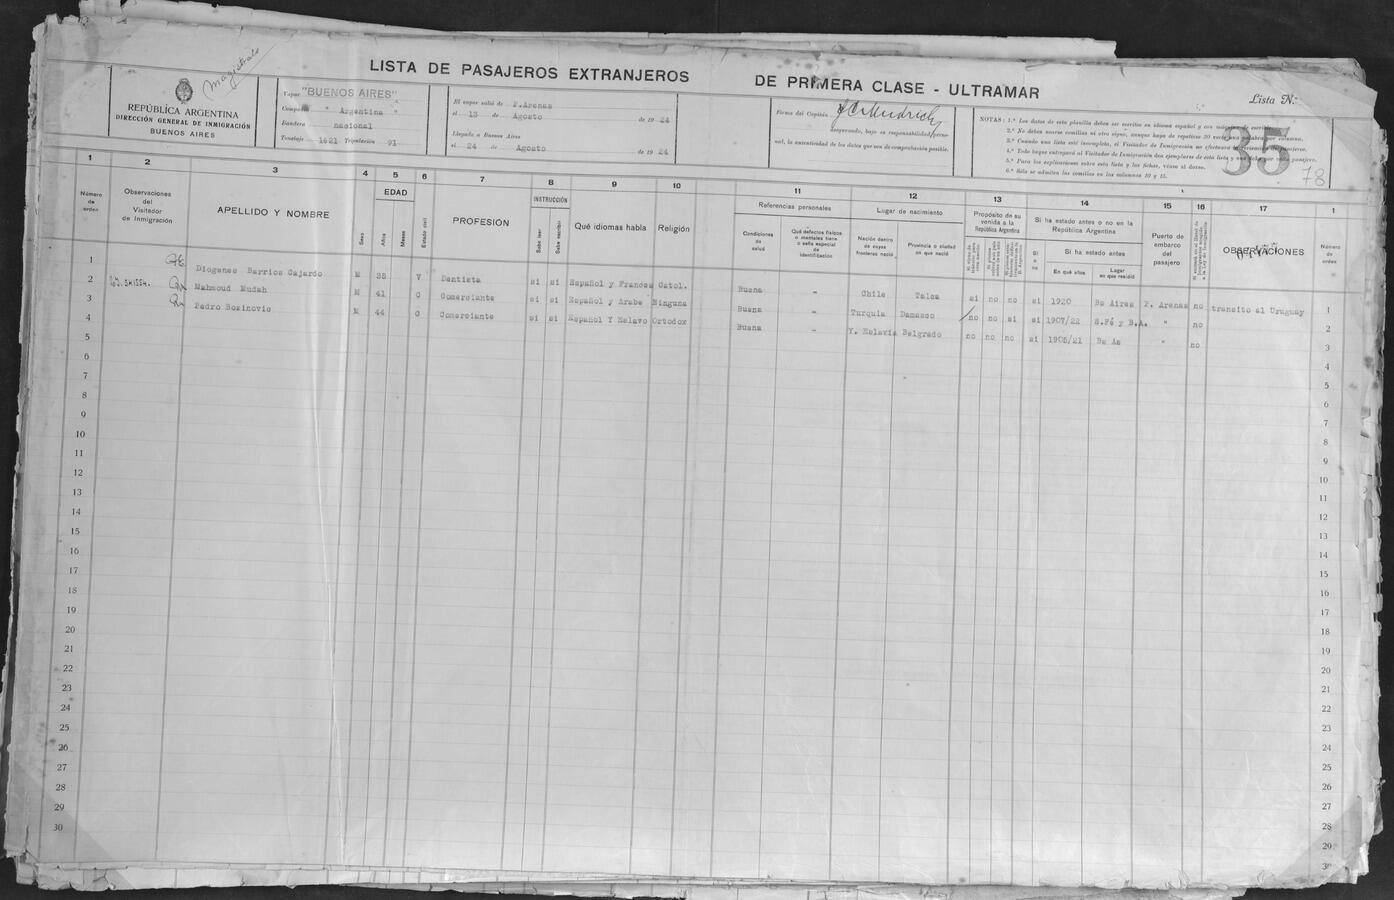 Magistrado
LISTA DE PASAJEROS EXTRANJEROS DE PRIMERA CLASE - ULTRAMAR
Lista N.º
35
78
REPÚBLICA ARGENTINA
DIRECCIÓN GENERAL DE INMIGRACIÓN
BUENOS AIRES
Vapor "BUENOS AIRES"
Compañía " Argentina "
Bandera nacional
Tonelaje 1621 Tripulación 91
El vapor salió de P.Arenas
el 13 de Agosto de 1924
Llegada a Buenos Aires
el 24 de Agosto de 1924
Firma del Capitán
asegurando, bajo su responsabilidad perso-
nal, la autenticidad de los datos que son de comprobación posible.
NOTAS: 1.ª Los datos de esta planilla deben ser escritos en idioma español y con máquina de escribir.
2.ª No deben usarse comillas ni otro signo, aunque haya de repetirse 30 veces una palabra por columna.
3.ª Cuando una lista esté incompleta, el Visitador de Inmigración no efectuará el desembarco de pasajeros.
4.ª Todo buque entregará al Visitador de Inmigración dos ejemplares de esta lista y una ficha por cada pasajero.
5.ª Para las explicaciones sobre esta lista y las fichas, véase al dorso.
6.ª Sólo se admiten las comillas en las columnas 10 y 15.
1 2 3 4 5 6 7 8 9 10 11 12 13 14 15 16 17 1
Número de orden
Observaciones del Visitador de Inmigración
APELLIDO Y NOMBRE
Sexo
EDAD
Años
Meses
Estado civil
PROFESIÓN
INSTRUCCIÓN
Sabe leer
Sabe escribir
Qué idiomas habla
Religión
Referencias personales
Condiciones de salud
Qué defectos físicos o mentales tiene o seña especial de identificación
Lugar de nacimiento
Nación dentro de cuyas fronteras nació
Provincia o ciudad en que nació
Propósito de su venida a la República Argentina
Si ha estado antes o no en la República Argentina
Si o no
Si ha estado antes
En qué años
Lugar en que residió
Puerto de embarco del pasajero
OBSERVACIONES
Número de orden
1 Diogenes Barrios Gajardo M 35 V Dentista si si Español y Frances Catol. Buena " Chile Talca si no no si 1920 Bs Aires P. Arenas no transito al Uruguay 1
2 Mahmoud Mudah M 41 C Comerciante si si Español y Arabe Ninguna Buena " Turquia Damasco no no si si 1907/22 S.Fé y B.A. " no 2
3 Pedro Bozinovic M 44 C Comerciante si si Español Y Eslavo Ortodox Buena " Y. Eslavia Belgrado no no no si 1905/21 Bs As " no 3
4 4
5 5
6 6
7 7
8 8
9 9
10 10
11 11
12 12
13 13
14 14
15 15
16 16
17 17
18 18
19 19
20 20
21 21
22 22
23 23
24 24
25 25
26 26
27 27
28 28
29 29
30 30